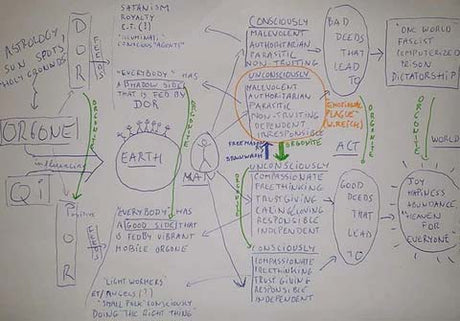 ASTROLOGY,
SUN SPOTS,
HOLY GROUNDS
DOR
FEEDS
SATANISM
ROYALTY
"ILLUMINATI"
CONSCIOUS "AGENTS"
"EVERYBODY" HAS
A SHADOW SIDE
THAT IS FED BY
DOR
ORGONE
influencing
Qi
EARTH
MAN
Positive
OR
FEEDS
"EVERYBODY" HAS
A GOOD SIDE THAT
IS FED BY VIBRANT
MOBILE ORGONE
"LIGHT WORKERS"
ET/ANGELS (?)
"SMALL FOLK" CONSCIOUSLY
DOING THE RIGHT THING
CONSCIOUSLY
MALEVOLENT
AUTHORITARIAN
PARASITIC
NON-TRUSTING
UNCONSCIOUSLY
MALEVOLENT
AUTHORITARIAN
PARASITIC
NON-TRUSTING
DEPENDENT
IRRESPONSIBLE
"EMOTIONAL
PLAGUE"
(W.REICH)
FREEMASON
BRAINWASH
ORGONITE
ACT
UNCONSCIOUSLY
COMPASSIONATE
FREETHINKING
TRUSTGIVING
CARING & LOVING
RESPONSIBLE
INDEPENDENT
CONSCIOUSLY
COMPASSIONATE
FREETHINKING
TRUST GIVING
RESPONSIBLE
INDEPENDENT
BAD
DEEDS
THAT
LEAD
TO
ORGONITE
GOOD
DEEDS
THAT
LEAD
TO
"ONE WORLD
FASCIST
COMPUTERIZED
PRISON
DICTATORSHIP"
ORGONITE
WORLD
JOY
HAPPINESS
ABUNDANCE
"HEAVEN
FOR
EVERYONE"